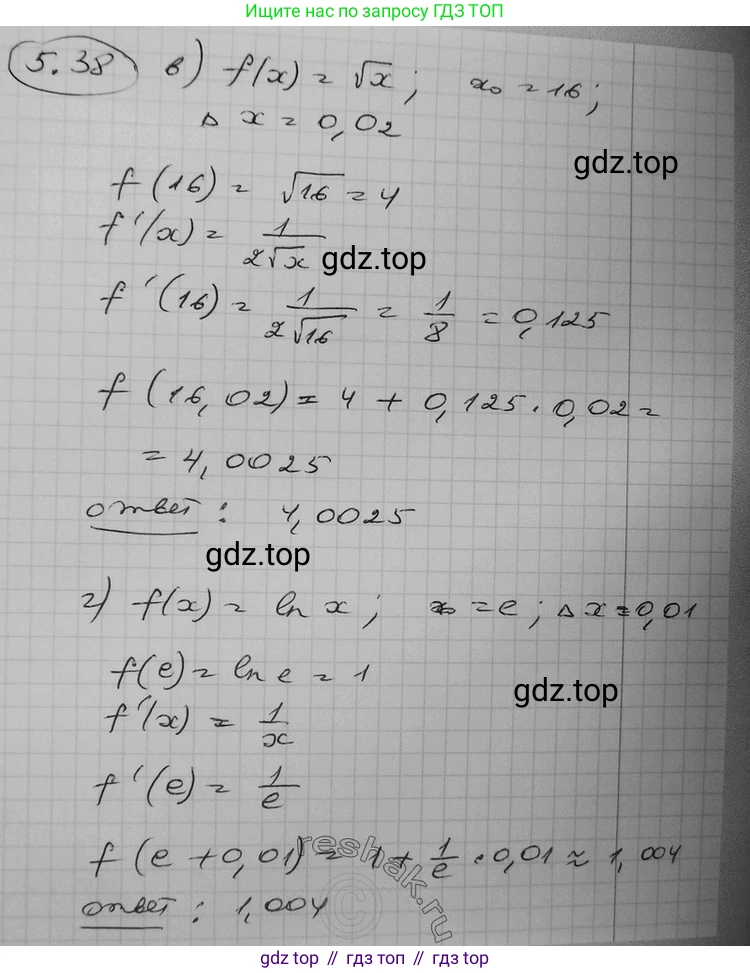 Ищите нас по запросу ГДЗ ТОП
5.38 в) f(x) = √x; x₀ = 16;
Δx = 0,02
gdz.top
f(16) = √16 = 4
f'(x) = 1/(2√x)
gdz.top
f'(16) = 1/(2√16) = 1/8 = 0,125
f(16,02) = 4 + 0,125 · 0,02 =
= 4,0025
ответ: 4,0025
gdz.top
г) f(x) = ln x; x₀ = e; Δx = 0,01
f(e) = ln e = 1
gdz.top
f'(x) = 1/x
f'(e) = 1/e
f(e + 0,01) = 1 + 1/e · 0,01 ≈ 1,004
reshak.ru
ответ: 1,004
gdz.top // гдз топ // gdz.top